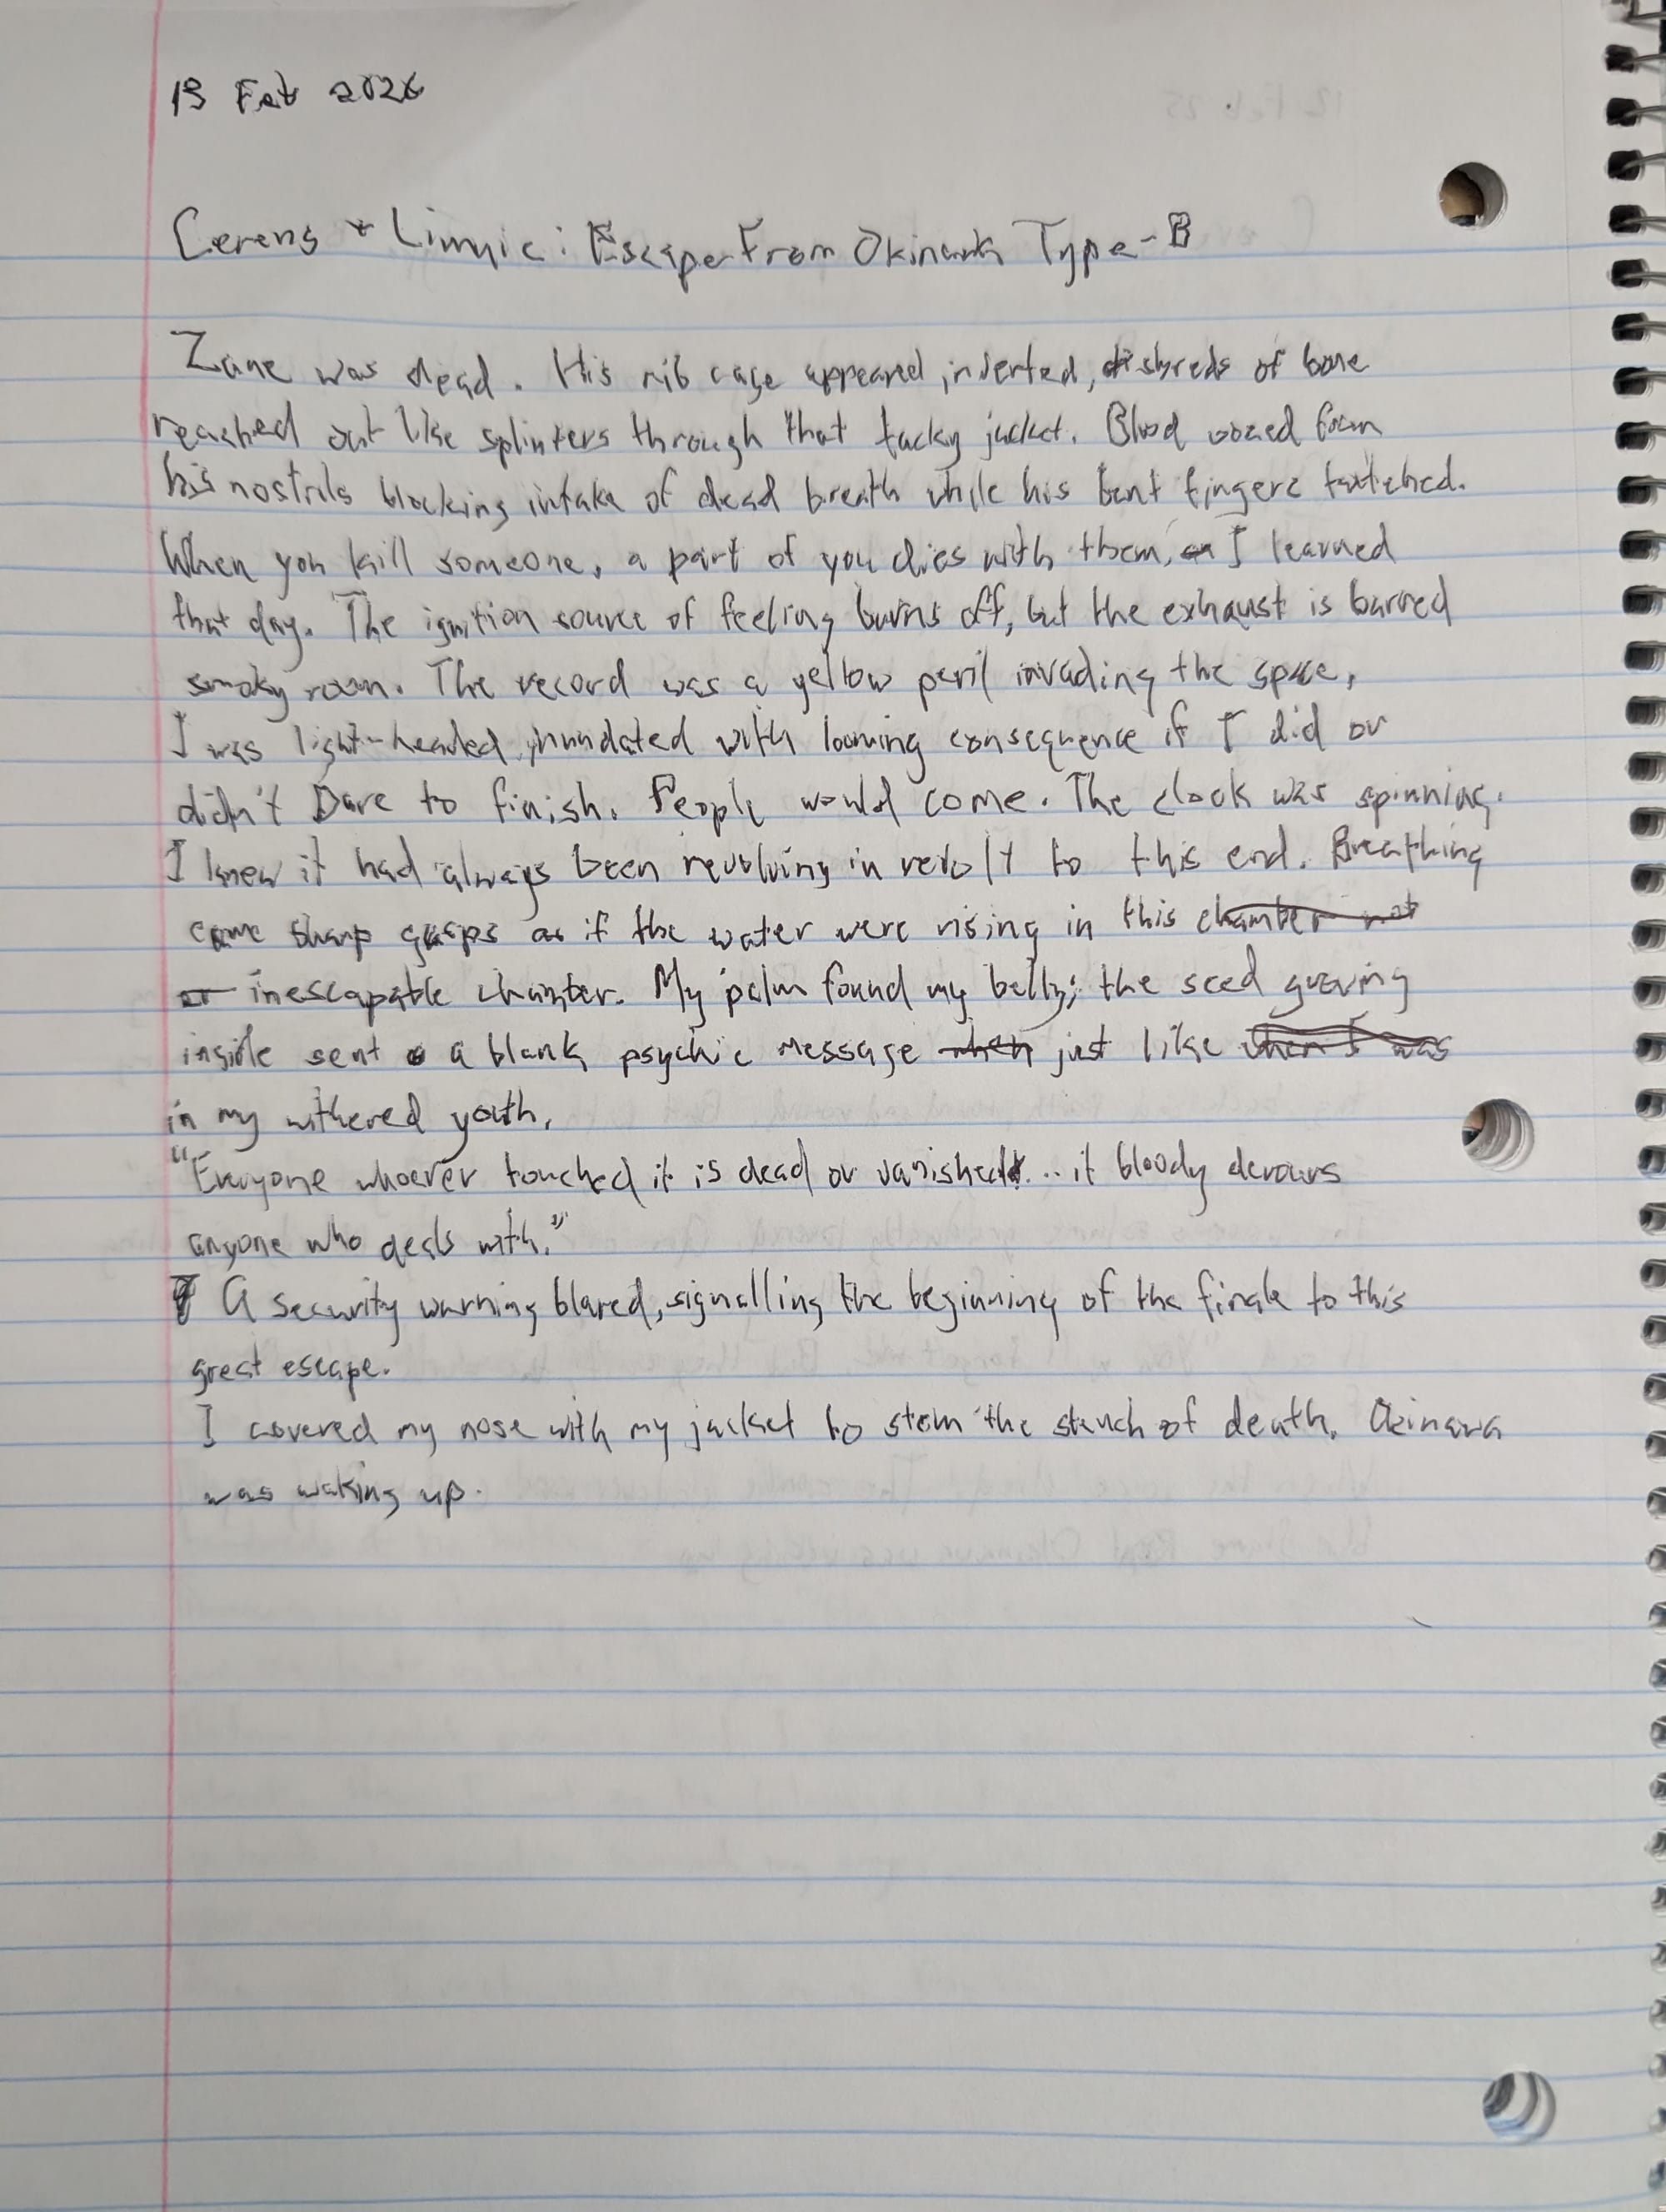 19 Feb 2026
Cerens + Limyic: Escape From Okinawa Type-B
Zane was dead. His rib cage appeared inverted, shreds of bone
reached out like splinters through that tacky jacket. Blood oozed from
his nostrils blocking intake of dead breath while his bent fingers twitched.
When you kill someone, a part of you dies with them, I learned
that day. The ignition source of feeling burns off, but the exhaust is barred
smoky room. The record was a yellow peril invading the space,
I was light-headed, inundated with looming consequence if I did or
didn't Dare to finish. People would come. The clock was spinning.
I knew it had always been revolving in revolt to this end. Breathing
came sharp gasps as if the water were rising in this chamber not
or inescapable chamber. My palm found my belly; the seed growing
inside sent a blank psychic message when just like when I was
in my withered youth.
"Everyone whoever touched it is dead or vanished... it bloody devours
anyone who deals with."
A security warning blared, signalling the beginning of the finale to this
great escape.
I covered my nose with my jacket to stem the stench of death. Okinawa
was waking up.